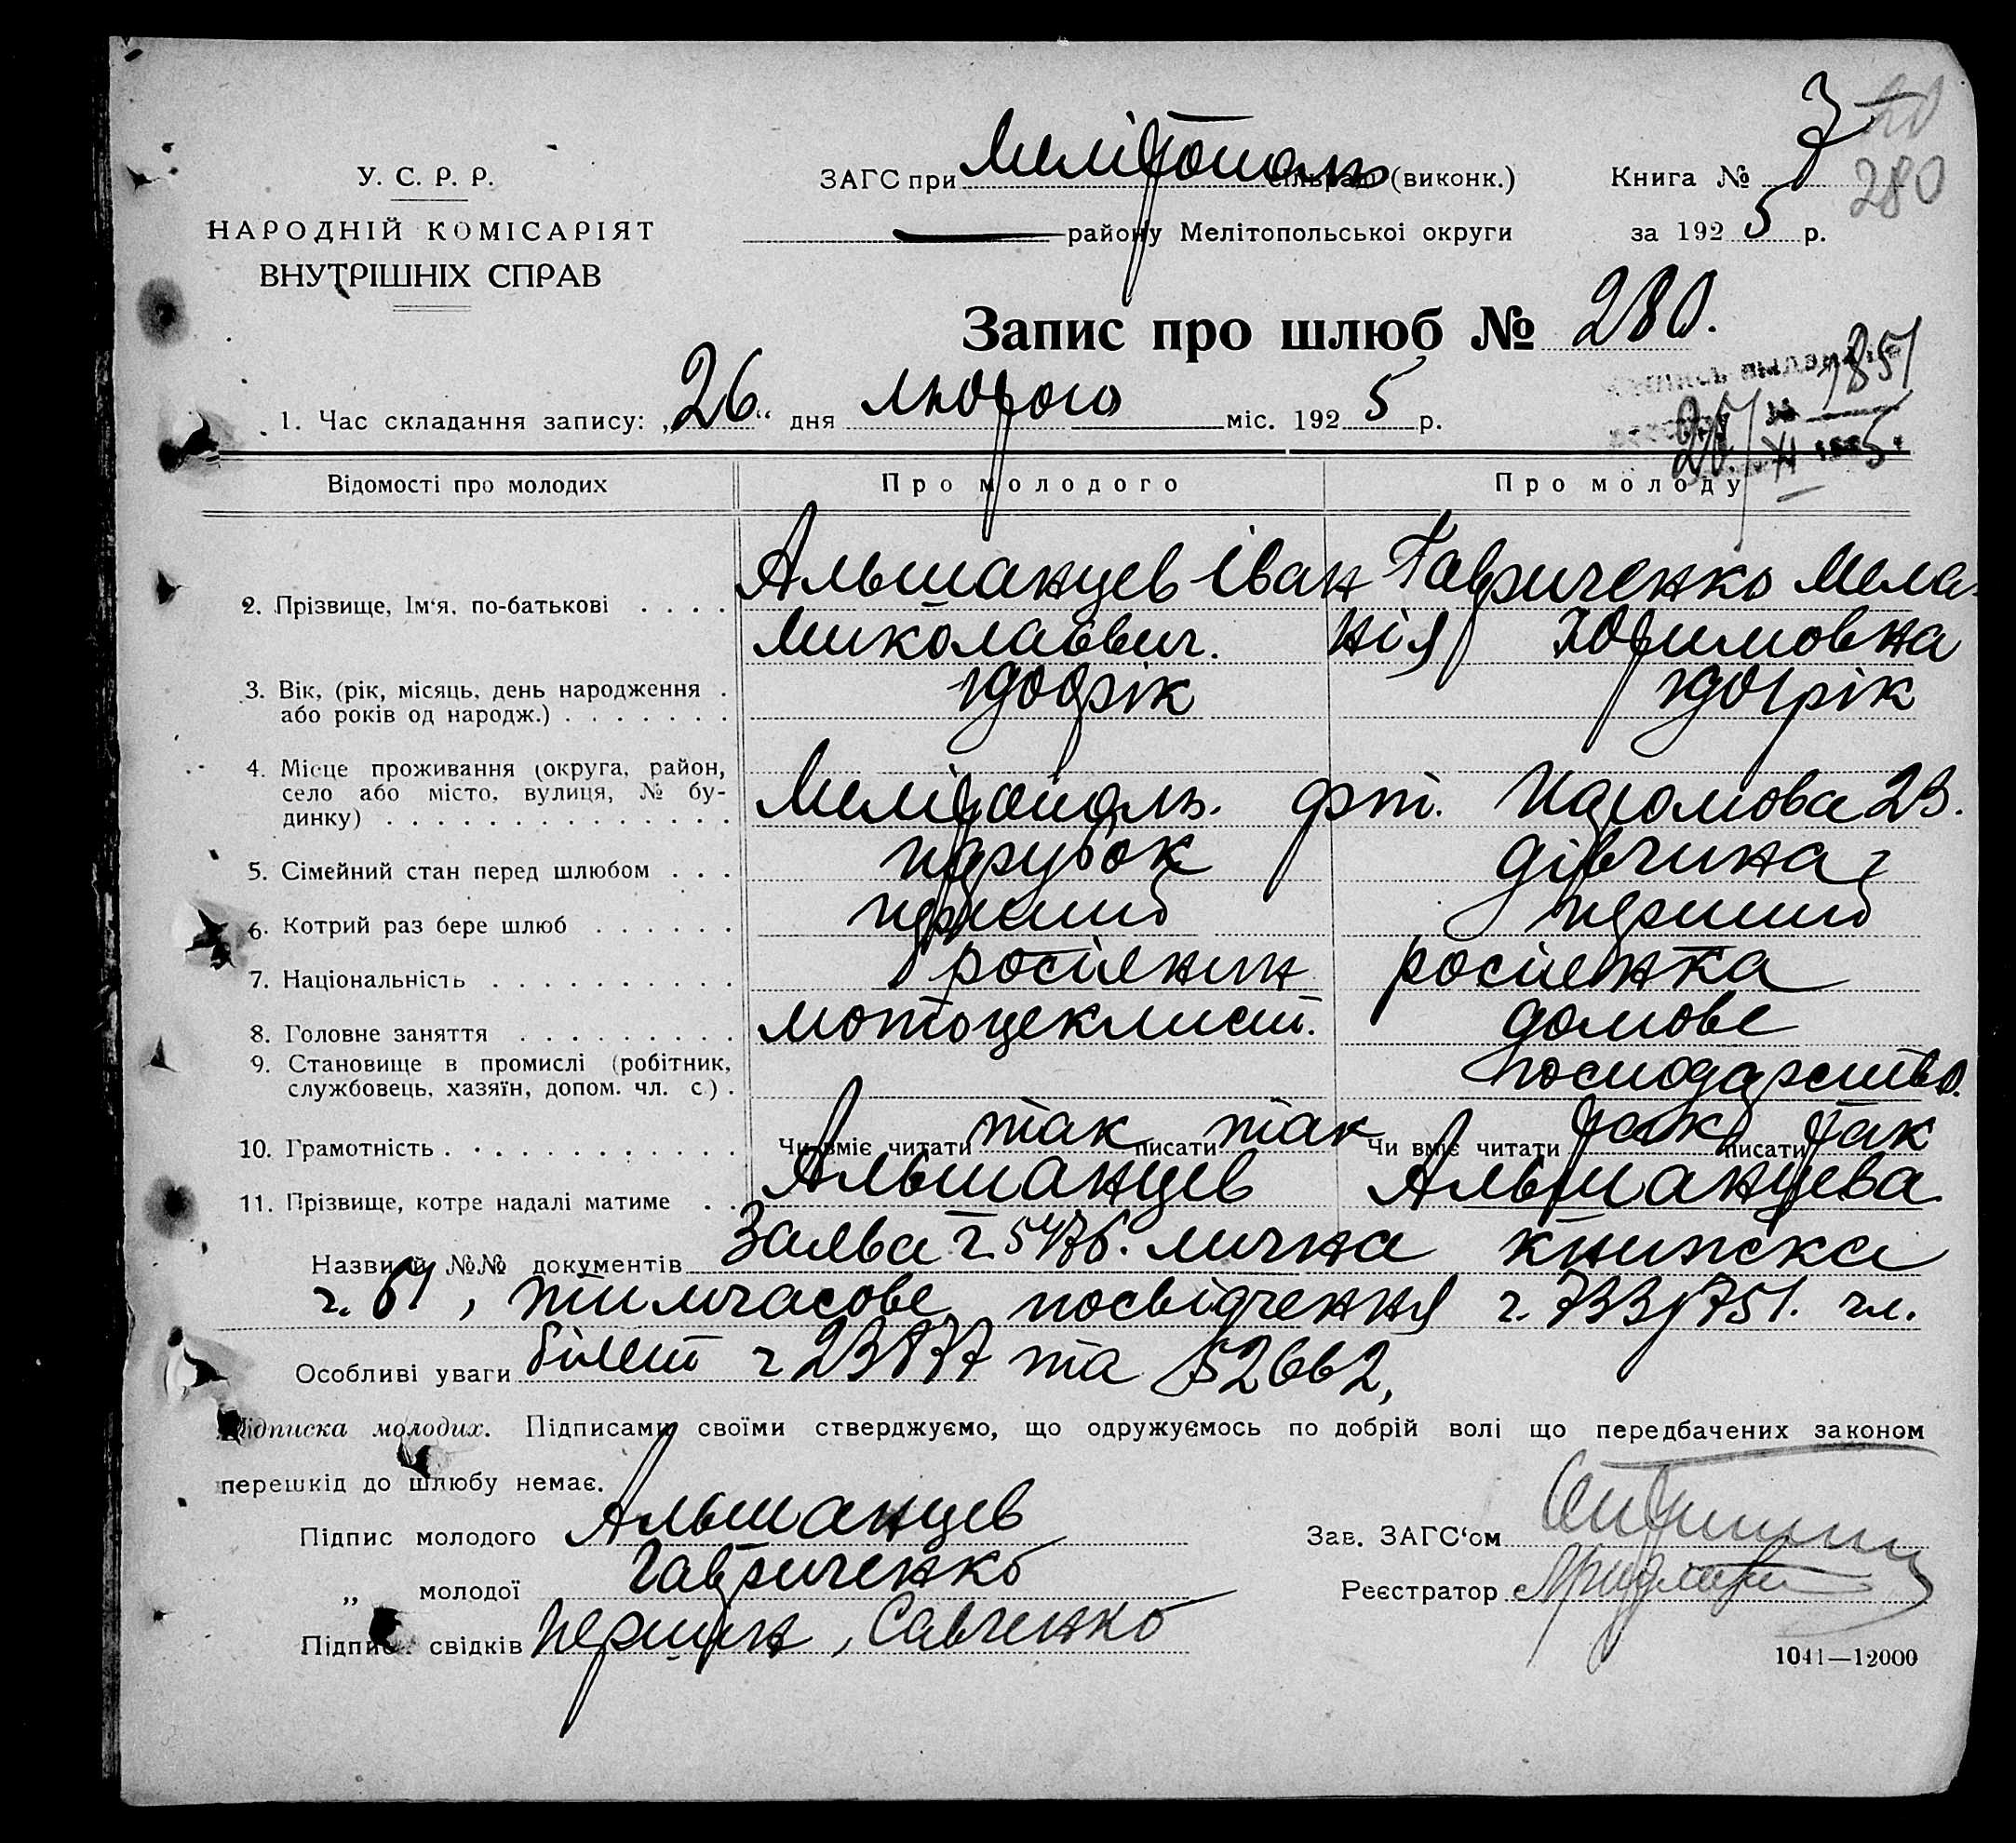 20
3
280
У. С. Р. Р.
НАРОДНІЙ КОМІСАРІЯТ
ВНУТРІШНІХ СПРАВ
ЗАГС при Мелітополь сільраді (виконк.)
району Мелітопольської округи
Книга №
за 1925 р.
Запис про шлюб № 280.
1. Час складання запису: „26“ дня лютого міс. 1925 р.
1851
Відомості про молодих
Про молодого
Про молоду
2. Прізвище, Ім'я, по-батькові
Альшанцев Іван Миколаєвич.
Гавриченко Меланія Юхимовна
3. Вік, (рік, місяць, день народження або років од народж.)
1900 рік
1901 рік
4. Місце проживання (округа, район, село або місто, вулиця, № будинку)
Мелітополь. 23.
5. Сімейний стан перед шлюбом
парубок
дівчина
6. Котрий раз бере шлюб
перший
перший
7. Національність
росіянин
росіянка
8. Головне заняття
мотоцеклист.
домове господарство.
9. Становище в промислі (робітник, службовець, хазяїн, допом. чл. с.)
10. Грамотність
Чи вміє читати так писати так
Чи вміє читати так писати так
11. Прізвище, котре надалі матиме
Альшанцев
Альшанцева
Назви й №№ документів Заява ч. 5476. лична книжка
ч. 61, тимчасове посвідчення ч. 733/751. чл.
Особливі уваги білет ч 23877 та 52662,
Підписка молодих. Підписами своїми стверджуємо, що одружуємось по добрій волі що передбачених законом
перешкід до шлюбу немає.
Підпис молодого Альшанцев
„ молодої Гавриченко
Підпис свідків Першин, Савченко
Зав. ЗАГС'ом
Реєстратор
1041—12000